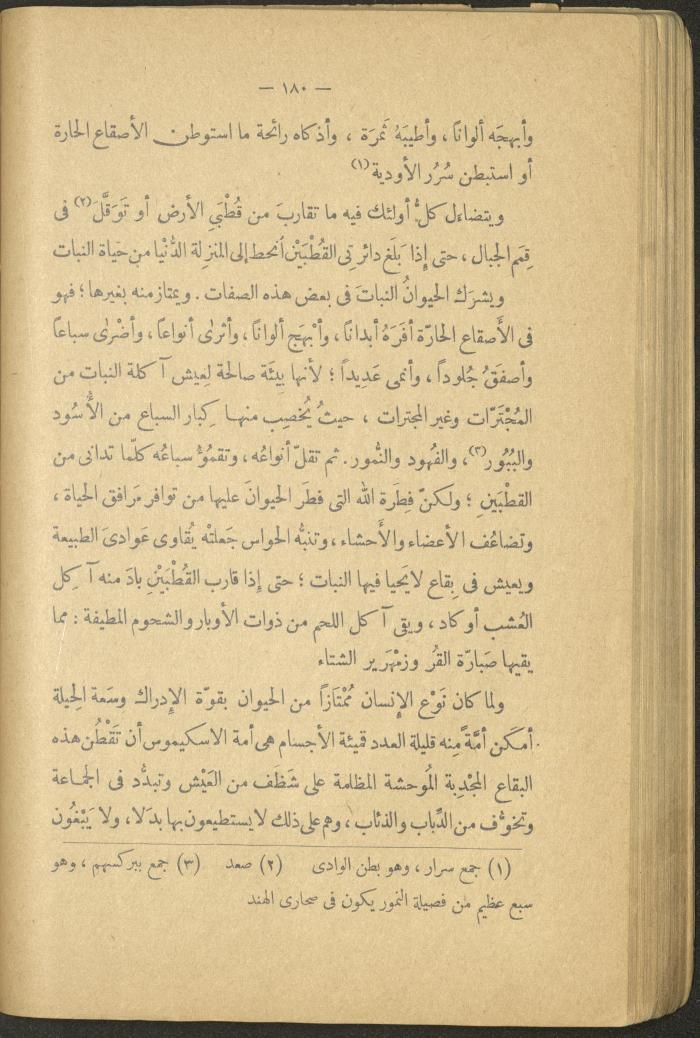 — ١٨٠ —
وأبهجَه ألوانًا ، وأطيبَهُ ثَمرَة ، وأذكاه رائحة ما استوطن الأصقاع الحارة
أو استبطن سُرُر الأودية (١)
ويتضاءل كلُّ أولئك فيه ما تقاربَ من قُطْبَيِ الأرض أو تَوَقَّلَ (٢) فى
قِمَم الجبال ، حتى إِذا بَلغ دائرتِى القُطْبَيْنِ انحطّ إلى المنزلة الدُّنْيا من حَياة النبات
ويشرَك الحيوانُ النباتَ فى بعض هذه الصفات . ويمتاز منه بغيرها ؛ فهو
فى الأَصقاع الحارّة أفَرَهُ أبدانًا ، وأبْهَج ألوانًا ، وأثرى أنواعًا ، وأضْرى سباعاً
وأصفَقُ جُلوداً ، وأنمى عَدِيداً ؛ لأنها بِيئَة صالحة لِعيش آكلة النبات من
المُجْتَرّات وغير المجترات ، حيثُ يُخصِب منهـا كِبار السباع من الأُسُود
والبُبُور (٣) ، والفُهود والنُّمور . ثم تقلّ أنواعُه ، وتقمُؤُ سباعُه كلّما تدانى من
القطْبَينِ ؛ ولكنّ فِطَرة الله التى فطَر الحيوانَ عليها من توافر مَرافق الحياة ،
وتضاعُف الأعضاء والأَحشاء ، وتنبُّه الحواس جَعلتْه يُقاوى عَوادىَ الطبيعة
ويعيش فى بِقاع لايَحيا فيها النبات ؛ حتى إِذا قارب القُطْبَيْنِ بادَ منه آكِل
العُشب أو كاد ، وبقى آكل اللحم من ذوات الأوبار والشحوم المطيفة : مما
يقيها صَبارّة القُر وزمْهَرير الشتاء
ولما كان نَوْع الإِنسان مُمْتَازاً من الحيوان بقوّة الإِدراك وسَعة الحِيلة
أمكَن أمَّةً مِنه قليلة العدد قميئة الأجسام هى أمة الاسكيموس أن تَقْطُن هذه
البقاع المجْدِبة المُوحشة المظلمة على شَظَف من العَيْش وتبدُّد فى الجَماعة
وتخوُّف من الدِّباب والذئاب ، وهم على ذلك لا يستطيعون بها بدَلا ، ولا يَبْغُون
(١) جمع سرار ، وهو بطن الوادى (٢) صعد (٣) جمع ببر كسهم ، وهو
سبع عظيم من فصيلة النمور يكون فى صحارى الهند